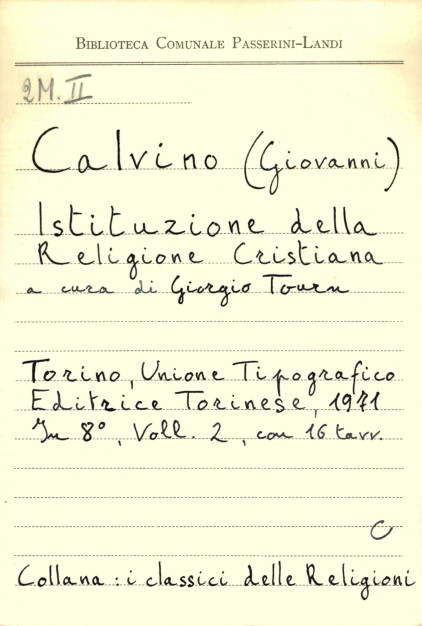 BIBLIOTECA COMUNALE PASSERINI-LANDI
2M. II
Calvino (Giovanni)
Istituzione della
Religione Cristiana
a cura di Giorgio Tourn
Torino, Unione Tipografico
Editrice Torinese, 1971
In 8°, Voll. 2, con 16 tavv.
C
Collana: i classici delle Religioni